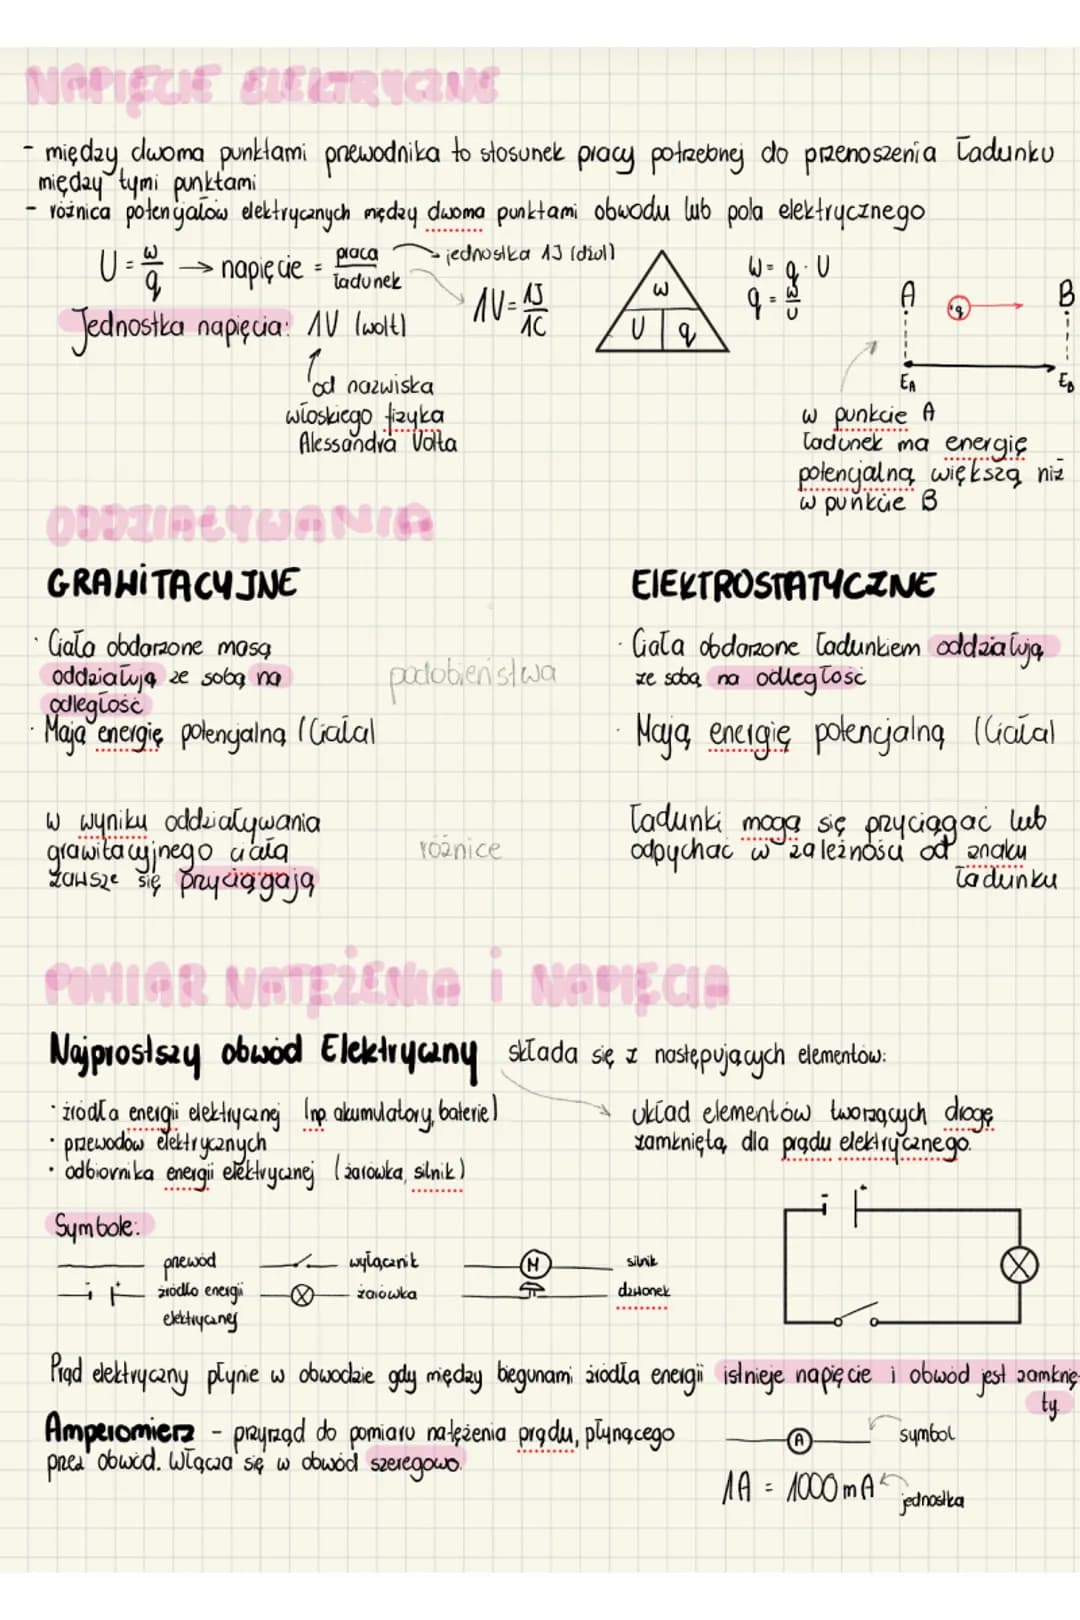 NAPIĘCIE ELEKTRYCZNE
- między dwoma punktami przewodnika to stosunek pracy potrzebnej do przenoszenia ładunku
między tymi punktami
- różnica potencjałów elektrycznych mędzy dwoma punktami obwodu lub pola elektrycznego
U = W/q → napięcie = praca/ładunek
jednostka 1J (dżul)
1V = 1J/1C
W
U q
W = q · U
q = W/U
Jednostka napięcia: 1V (wolt)
od nazwiska
włoskiego fizyka
Alessandra Volta
A B
q
EA EB
w punkcie A
ładunek ma energię
potencjalną większą niż
w punkcie B
ODDZIAŁYWANIA
GRAWITACYJNE
· Ciała obdarzone masą
oddziałują ze sobą na
odległość
· Mają energię potencjalną (Ciała)
podobieństwa
ElEKTROSTATYCZNE
· Ciała obdarzone ładunkiem oddziałują
ze sobą na odległość
· Mają energię potencjalną (Ciała)
w wyniku oddziaływania
grawitacyjnego ciała
zawsze się przyciągają
różnice
Ładunki mogą się przyciągać lub
odpychać w zależności od znaku
ładunku
POMIAR NATĘŻENIA i NAPIĘCIA
Najprostszy obwód Elektryczny składa się z następujących elementów:
· źródła energii elektrycznej (np. akumulatory, baterie)
· przewodów elektrycznych
· odbiornika energii elektrycznej (żarówka, silnik)
układ elementów tworzących drogę
zamkniętą dla prądu elektrycznego.
Symbole:
przewód
źródło energii
elektrycznej
wyłącznik
żarówka
M silnik
dzwonek
- +
- +
Prąd elektryczny płynie w obwodzie gdy między biegunami źródła energii istnieje napięcie i obwód jest zamknię-
ty.
Amperomierz - przyrząd do pomiaru natężenia prądu, płynącego
przez obwód. Włącza się w obwód szeregowo.
A symbol
1A = 1000 mA jednostka